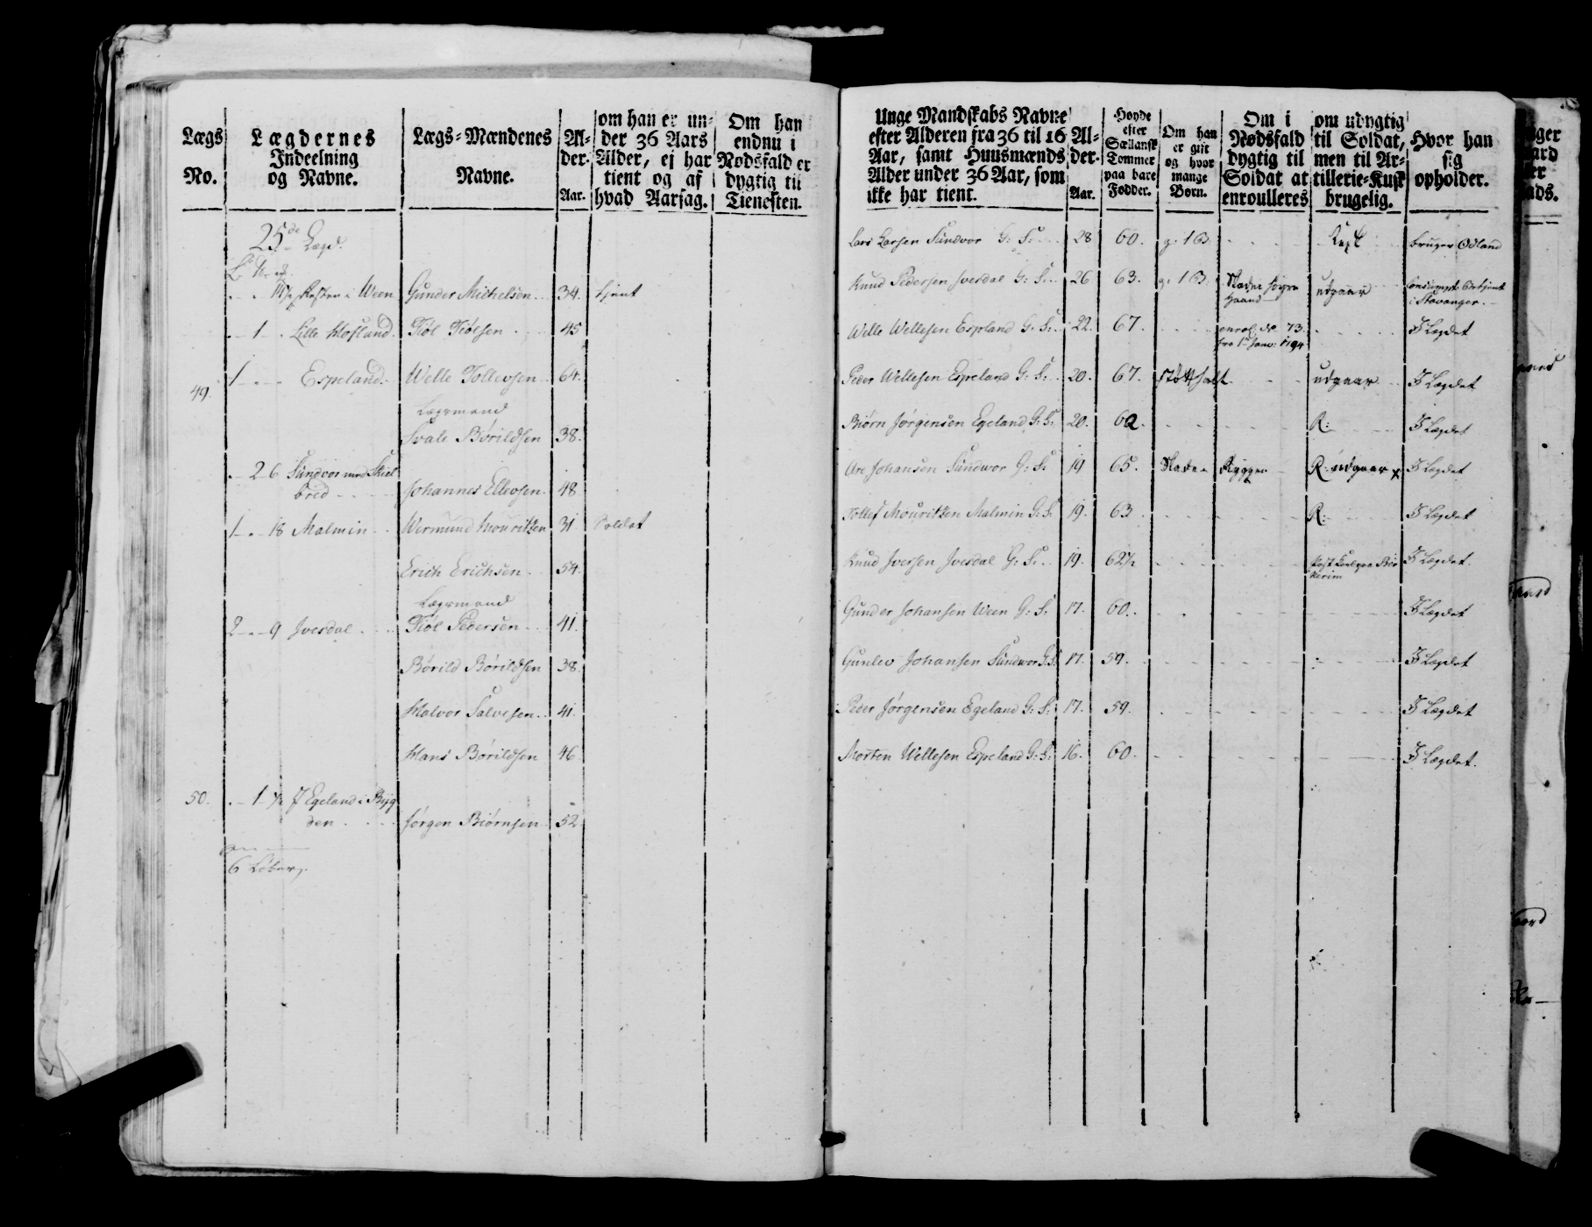 Lægs
No.
Lægdernes
Indeelning
og Navne.
Lægs-Mændenes
Navne.
Al-
der.
Aar.
om han er un-
der 36 Aars
Alder, ej har
tient og af
hvad Aarsag.
Om han
endnu i
Nødsfald er
dygtig til
Tienesten.
25de Lægd.
Ween Gunder Michelsen 34. tient
1 Lille Mosland Tiøl Tiølsen 45
49. 1 Espeland Welle Tollevsen 64.
Lægsmand
Svale Børildsen 38.
2 6 Sundvor med Skiel
bred Johannes Ellevsen 48
1 18 Malmin Wermund Mouritsen 31 Soldat
Erich Erichsen 54.
Lægsmand
2 9 Ivesdal Tiøl Pedersen 41.
Børild Børildsen 38.
Halvor Salvesen 41.
Hans Børildsen 46
50. 1 Egeland i Byg
den Jørgen Biørnsen 52
6
Unge Mandskabs Navne
efter Alderen fra 36 til 16
Aar, samt Huusmænds
Alder under 36 Aar, som
ikke har tient.
Al-
der.
Aar.
Høyde
efter
Sællansk
Tommer
paa bare
Fødder.
Om han
er gift
og hvor
mange
Børn.
Om i
Nødsfald
dygtig til
Soldat at
enroulleres
om udygtig
til Soldat,
men til Ar-
tillerie-Kusk
brugelig.
Hvor han
sig
opholder.
Lars Larsen Sundvor G: S: 28 60. g. 1 B bruger Odland
Knud Pedersen Ivesdal G: S: 26 63. g. 1 B Skade høyre
Haand udgaar
i Stavanger.
Welle Wellesen Espland G: S: 22. 67. 73.
fra 1 Janv: 1794 I Lægdet
Peder Wellesen Espeland G: S: 20. 67. udgaar I Lægdet
Biørn Jørgensen Egeland G: S: 20. 62. R: I Lægdet
Are Johansen Sundvor G: S: 19 65. Skade i Ryggen R. udgaar I Lægdet
Tollef Mouritsen Malmin G: S. 19. 63 R: I Lægdet
Knud Iversen Ivesdal G: S: 19. 62½ I Lægdet.
Gunder Johansen Ween G: S: 17. 60. I Lægdet
Gunlev Johansen Sundvor G: S. 17. 59. I Lægdet
Peder Jørgensen Egeland G: S: 17. 59. I Lægdet
Morten Wellesen Espeland G: S: 16. 60. I Lægdet.